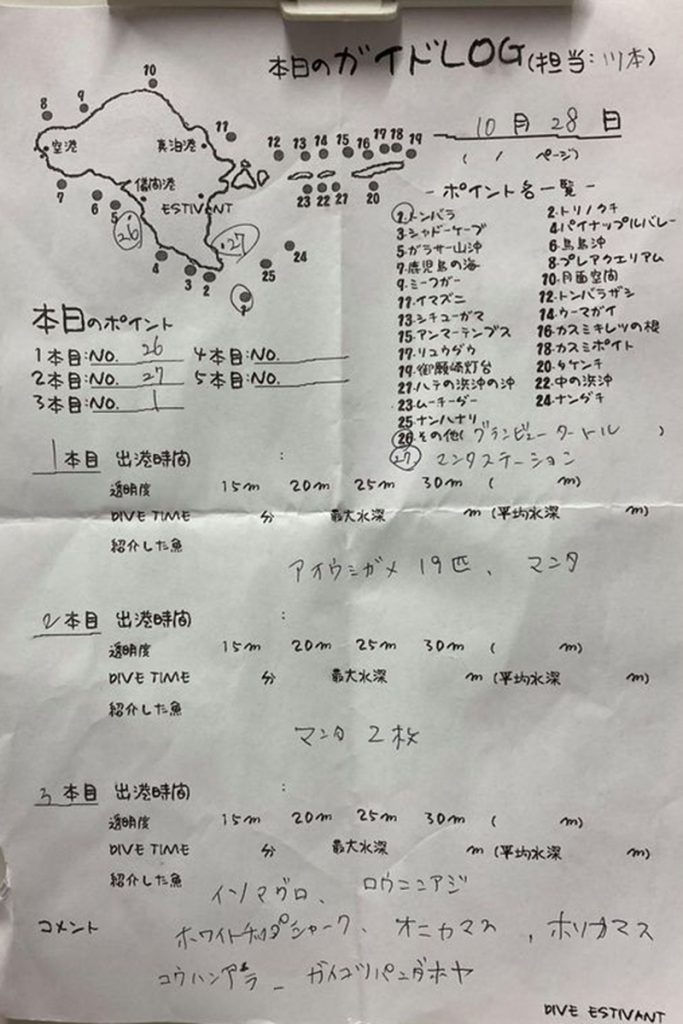 本日のガイドLOG(担当:川本)
10月28日
( / ページ)
10
8
9
空港
真泊港
11
12
13
14
15
16
17
18
19
儀間港
ESTIVANT
7
6
5
26
27
23
22
21
20
4
3
2
25
24
1
-ポイント名一覧-
1.トンバラ 2.トリノクチ
3.シャドーケーブ 4.パイナップルバレー
5.ガラサー山沖 6.鳥島沖
7.鹿児島の海 8.プレアクエリアム
9.ミーフガー 10.月面空間
11.イマズニ 12.トンバラザシ
13.シチューガマ 14.ウーマガイ
15.アンマーテンプス 16.カスミキレツの根
17.リュウグウ 18.カスミポイト
19.御願崎灯台 20.タケンチ
21.ハテの浜沖の沖 22.中の浜沖
23.ムーチーダー 24.ナングチ
25.ナンハナリ
26.その他(グランビュータートル )
27.マンタステーション
本日のポイント
1本目:NO. 26 4本目:NO.
2本目:NO. 27 5本目:NO.
3本目:NO. 1
1本目 出港時間 :
透明度 15m 20m 25m 30m ( m)
DIVE TIME 分 最大水深 m (平均水深 m)
紹介した魚
アオウミガメ 19匹、マンタ
2本目 出港時間 :
透明度 15m 20m 25m 30m ( m)
DIVE TIME 分 最大水深 m (平均水深 m)
紹介した魚
マンタ 2枚
3本目 出港時間 :
透明度 15m 20m 25m 30m ( m)
DIVE TIME 分 最大水深 m (平均水深 m)
紹介した魚
イソマグロ、ロウニンアジ
コメント ホワイトチップシャーク、オニカマス、ホソカマス
コウハンアラ、ガイコツパンダホヤ
DIVE ESTIVANT